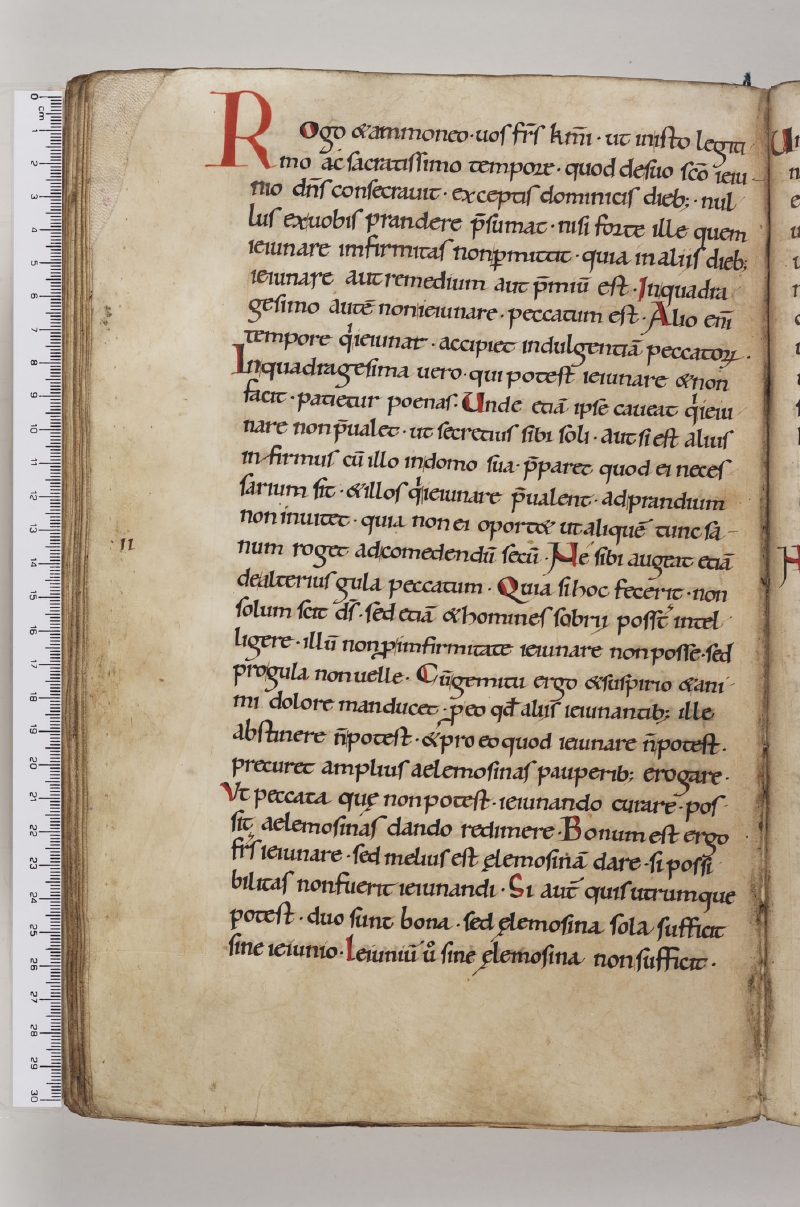 ROgo &ammoneo · uos fr̄s km̄i · ut iniſto legiti
mo ac ſacratiſſimo tempore · quod deſuo ſcō ieiu
nio dn̄ſ conſecrauit · exceptiſ dominiciſ dieb; · nul
luſ exuobiſ prandere p̄ſumat · niſi forte ille quem
ieiunare imfirmitaſ nonꝑmittit · quia inaliiſ dieb;
ieiunare aut remedium aut p̄miū eſt · Inquadra
geſimo autē nonieiunare · peccatum eſt · Alio eni̅
tempore qͥieiunat · accipiet indulgentiā peccatoꝝ ·
Inquadrageſima uero · qui poteſt ieiunare &non
facit · patietur poenaſ · Unde etiā ipſe caueat qͥieiu
nare non p̄ualet · ut ſecretiuſ ſibi ſoli · aut ſi eſt aliuſ
infirmuſ cū illo indomo ſua · p̄paret quod ei neceſ
ſarium ſit · &illoſ qͥieiunare p̄ualent · adprandium
non inuitet · quia non ei oport& ut aliquē tunc ſa
· II
num roget adcomedendū ſecū · Ne ſibi augeat etiā
dealteriuſ gula peccatum · Quia ſi hoc fecerit · non
ſolum ſcit dſ̄ · ſed etiā &homineſ ſobrij poſſt̄ intel
ligere · illū nonꝑimfirmitate ieiunare non poſſe · ſed
progula non uelle · Cūgemitu ergo &ſuſpirio &ani
mi dolore manducet · ꝑeo qđ aliiſ ieiunantib; ille
abſtinere n̄poteſt · &pro eo quod ieiunare n̄poteſt ·
precuret ampliuſ aelemoſinaſ pauperib; erogare ·
Vt peccata quę non poteſt · ieiunando curare · poſ
ſit aelemoſinaſ dando redimere · Bonum eſt ergo
fr̄ſ ieiunare · ſed meliuſ eſt ęlemoſinā dare · ſi poſſi
bilitaſ nonfuerit ieiunandi · Si aut̄ quiſ utrumque
poteſt · duo ſunt bona · ſed ęlemoſina ſola ſufficit
ſine ieiunio · Ieiuniū ůſine ęlemoſina non ſufficit ·